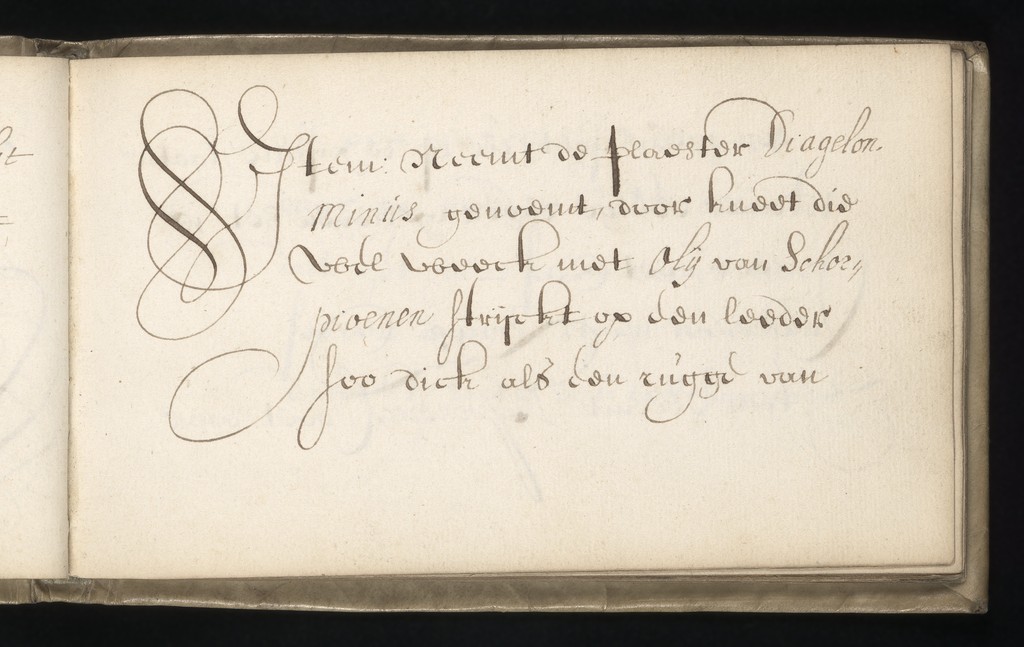 Item: Neemt de plaester Diagelon-
minüs genoemt, door kneet die
wél weeck met Olÿ van Schor,,
pioenen strijckt op een leeder
soo dick als een rügge van